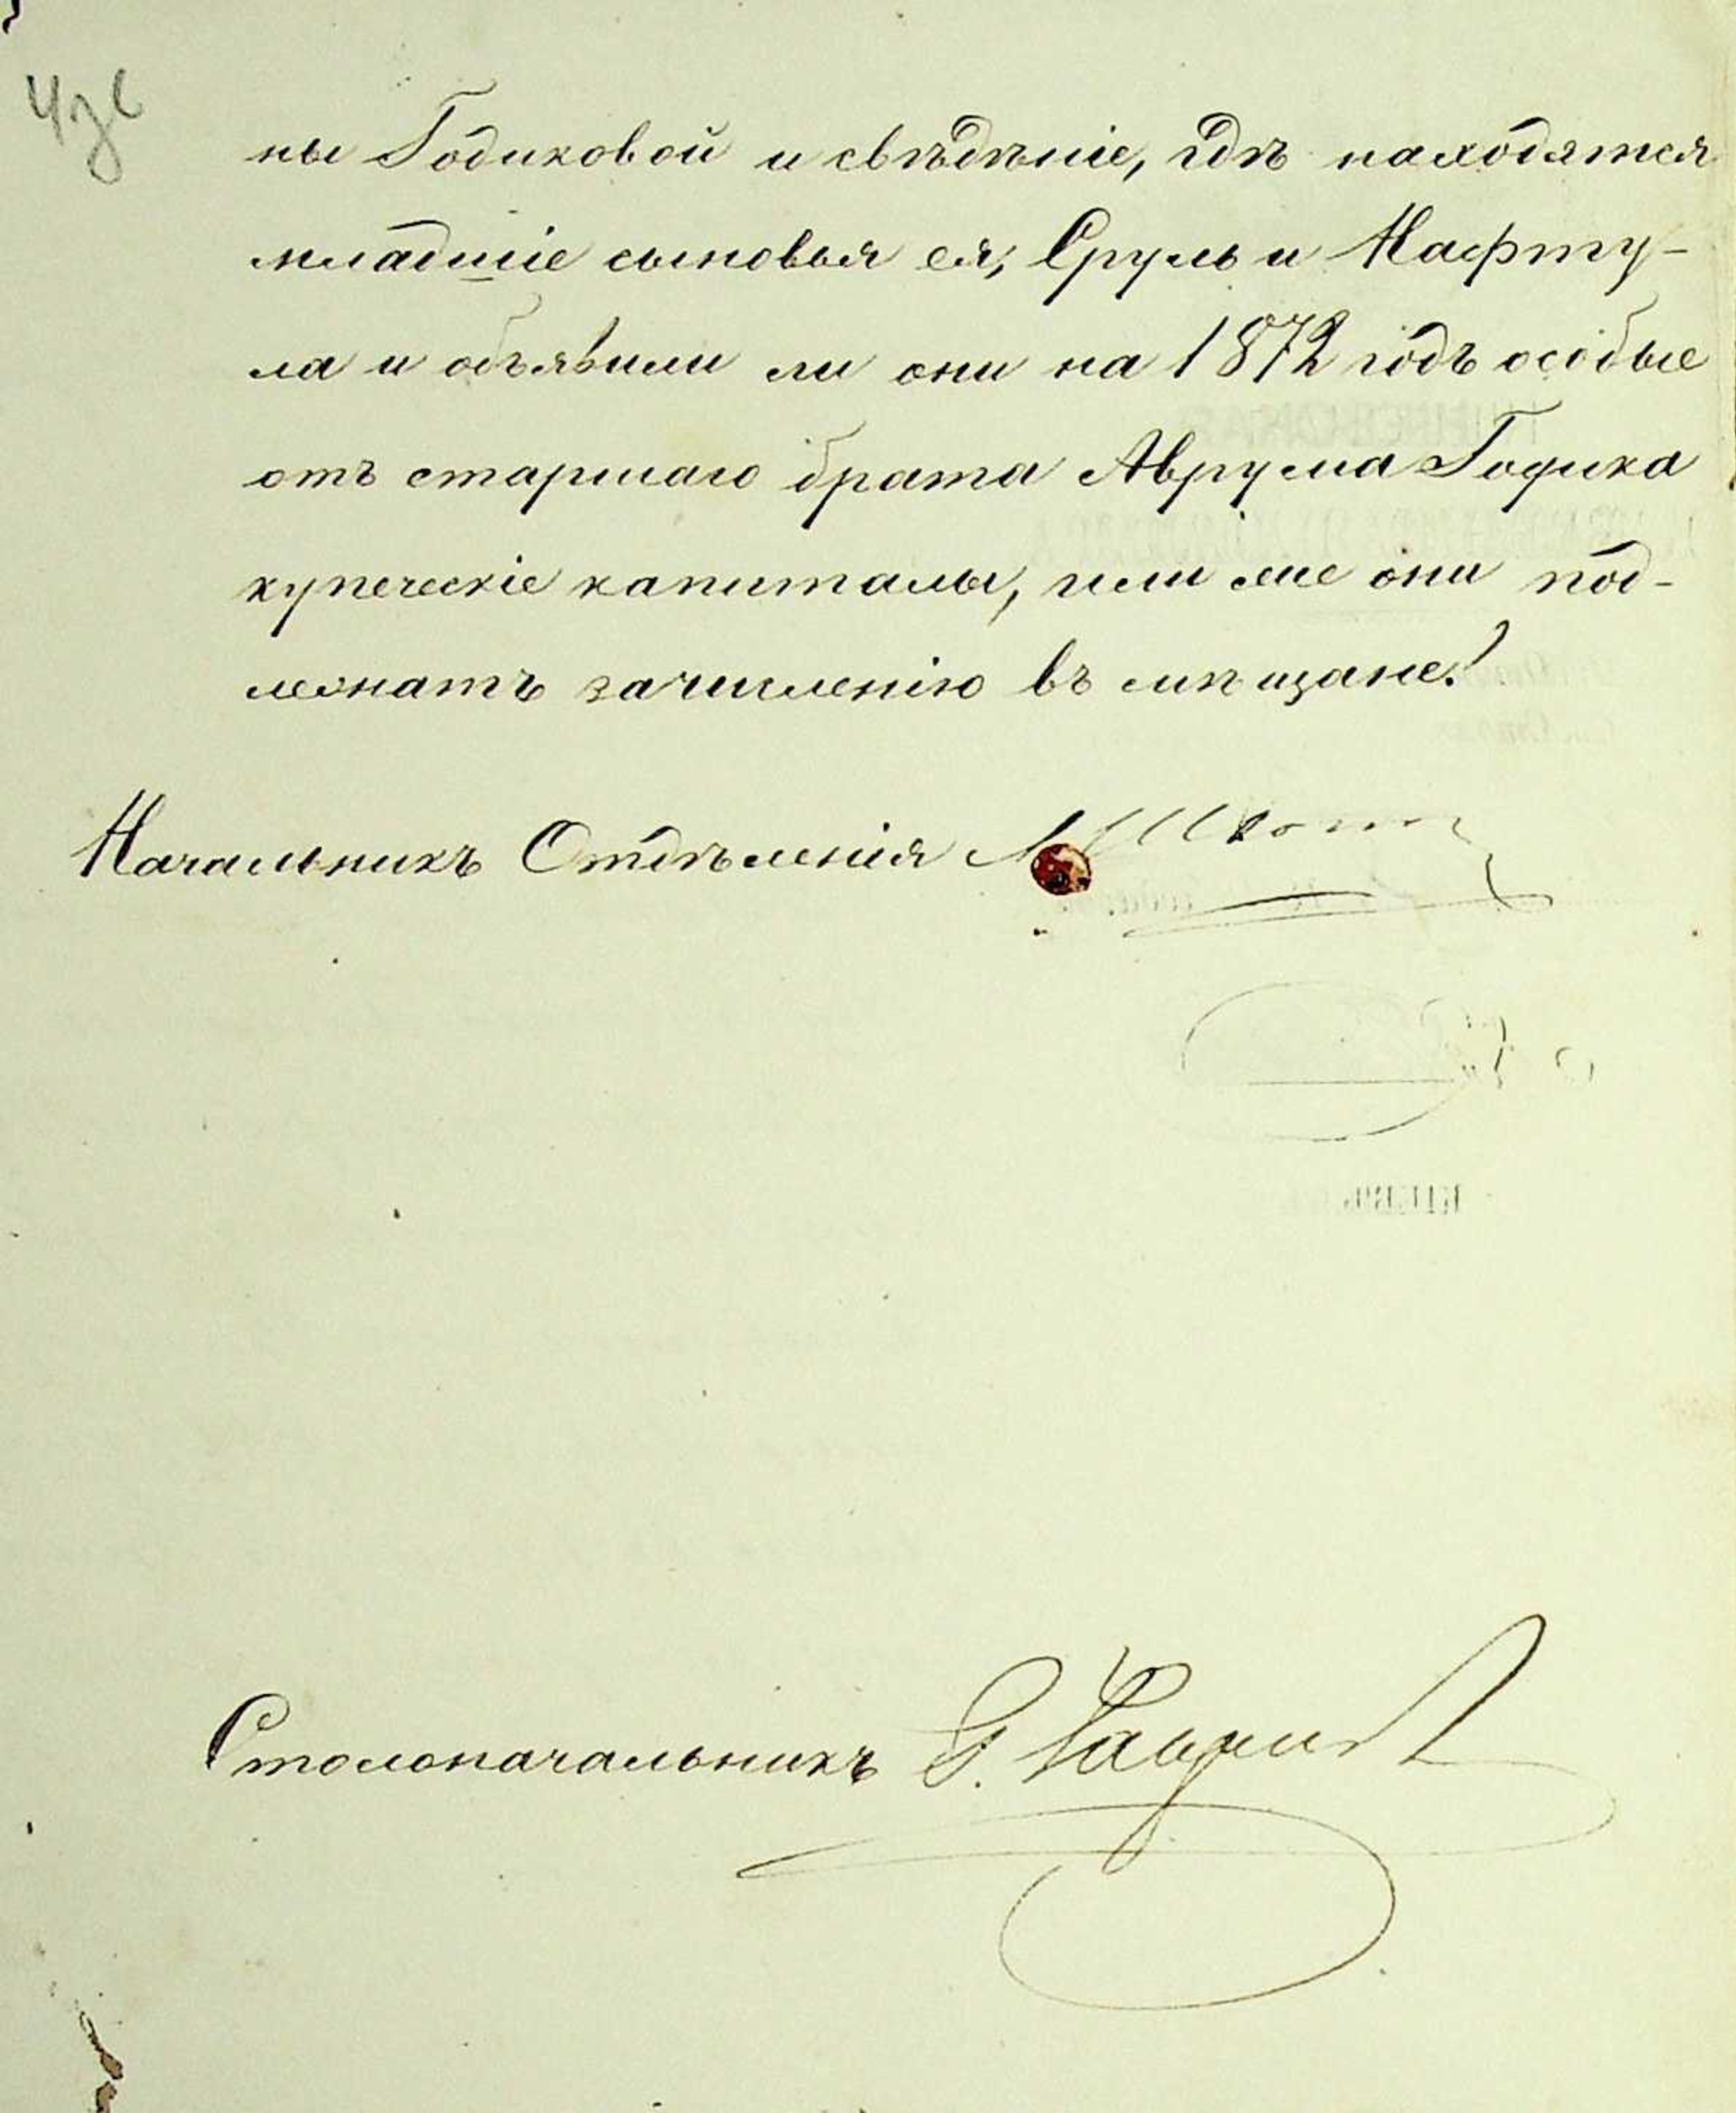 ны Годиковой и свѣдѣніе, гдѣ находятся
младшіе сыновья ея, Сруль и Нафту-
ла и объявили ли они на 1872 годъ особые
отъ старшаго брата Аврума Годика
купеческіе капиталы, или же они под-
лежатъ зачисленію въ мѣщане?
Начальникъ Отдѣленія
Столоначальникъ
КІЕВЪ